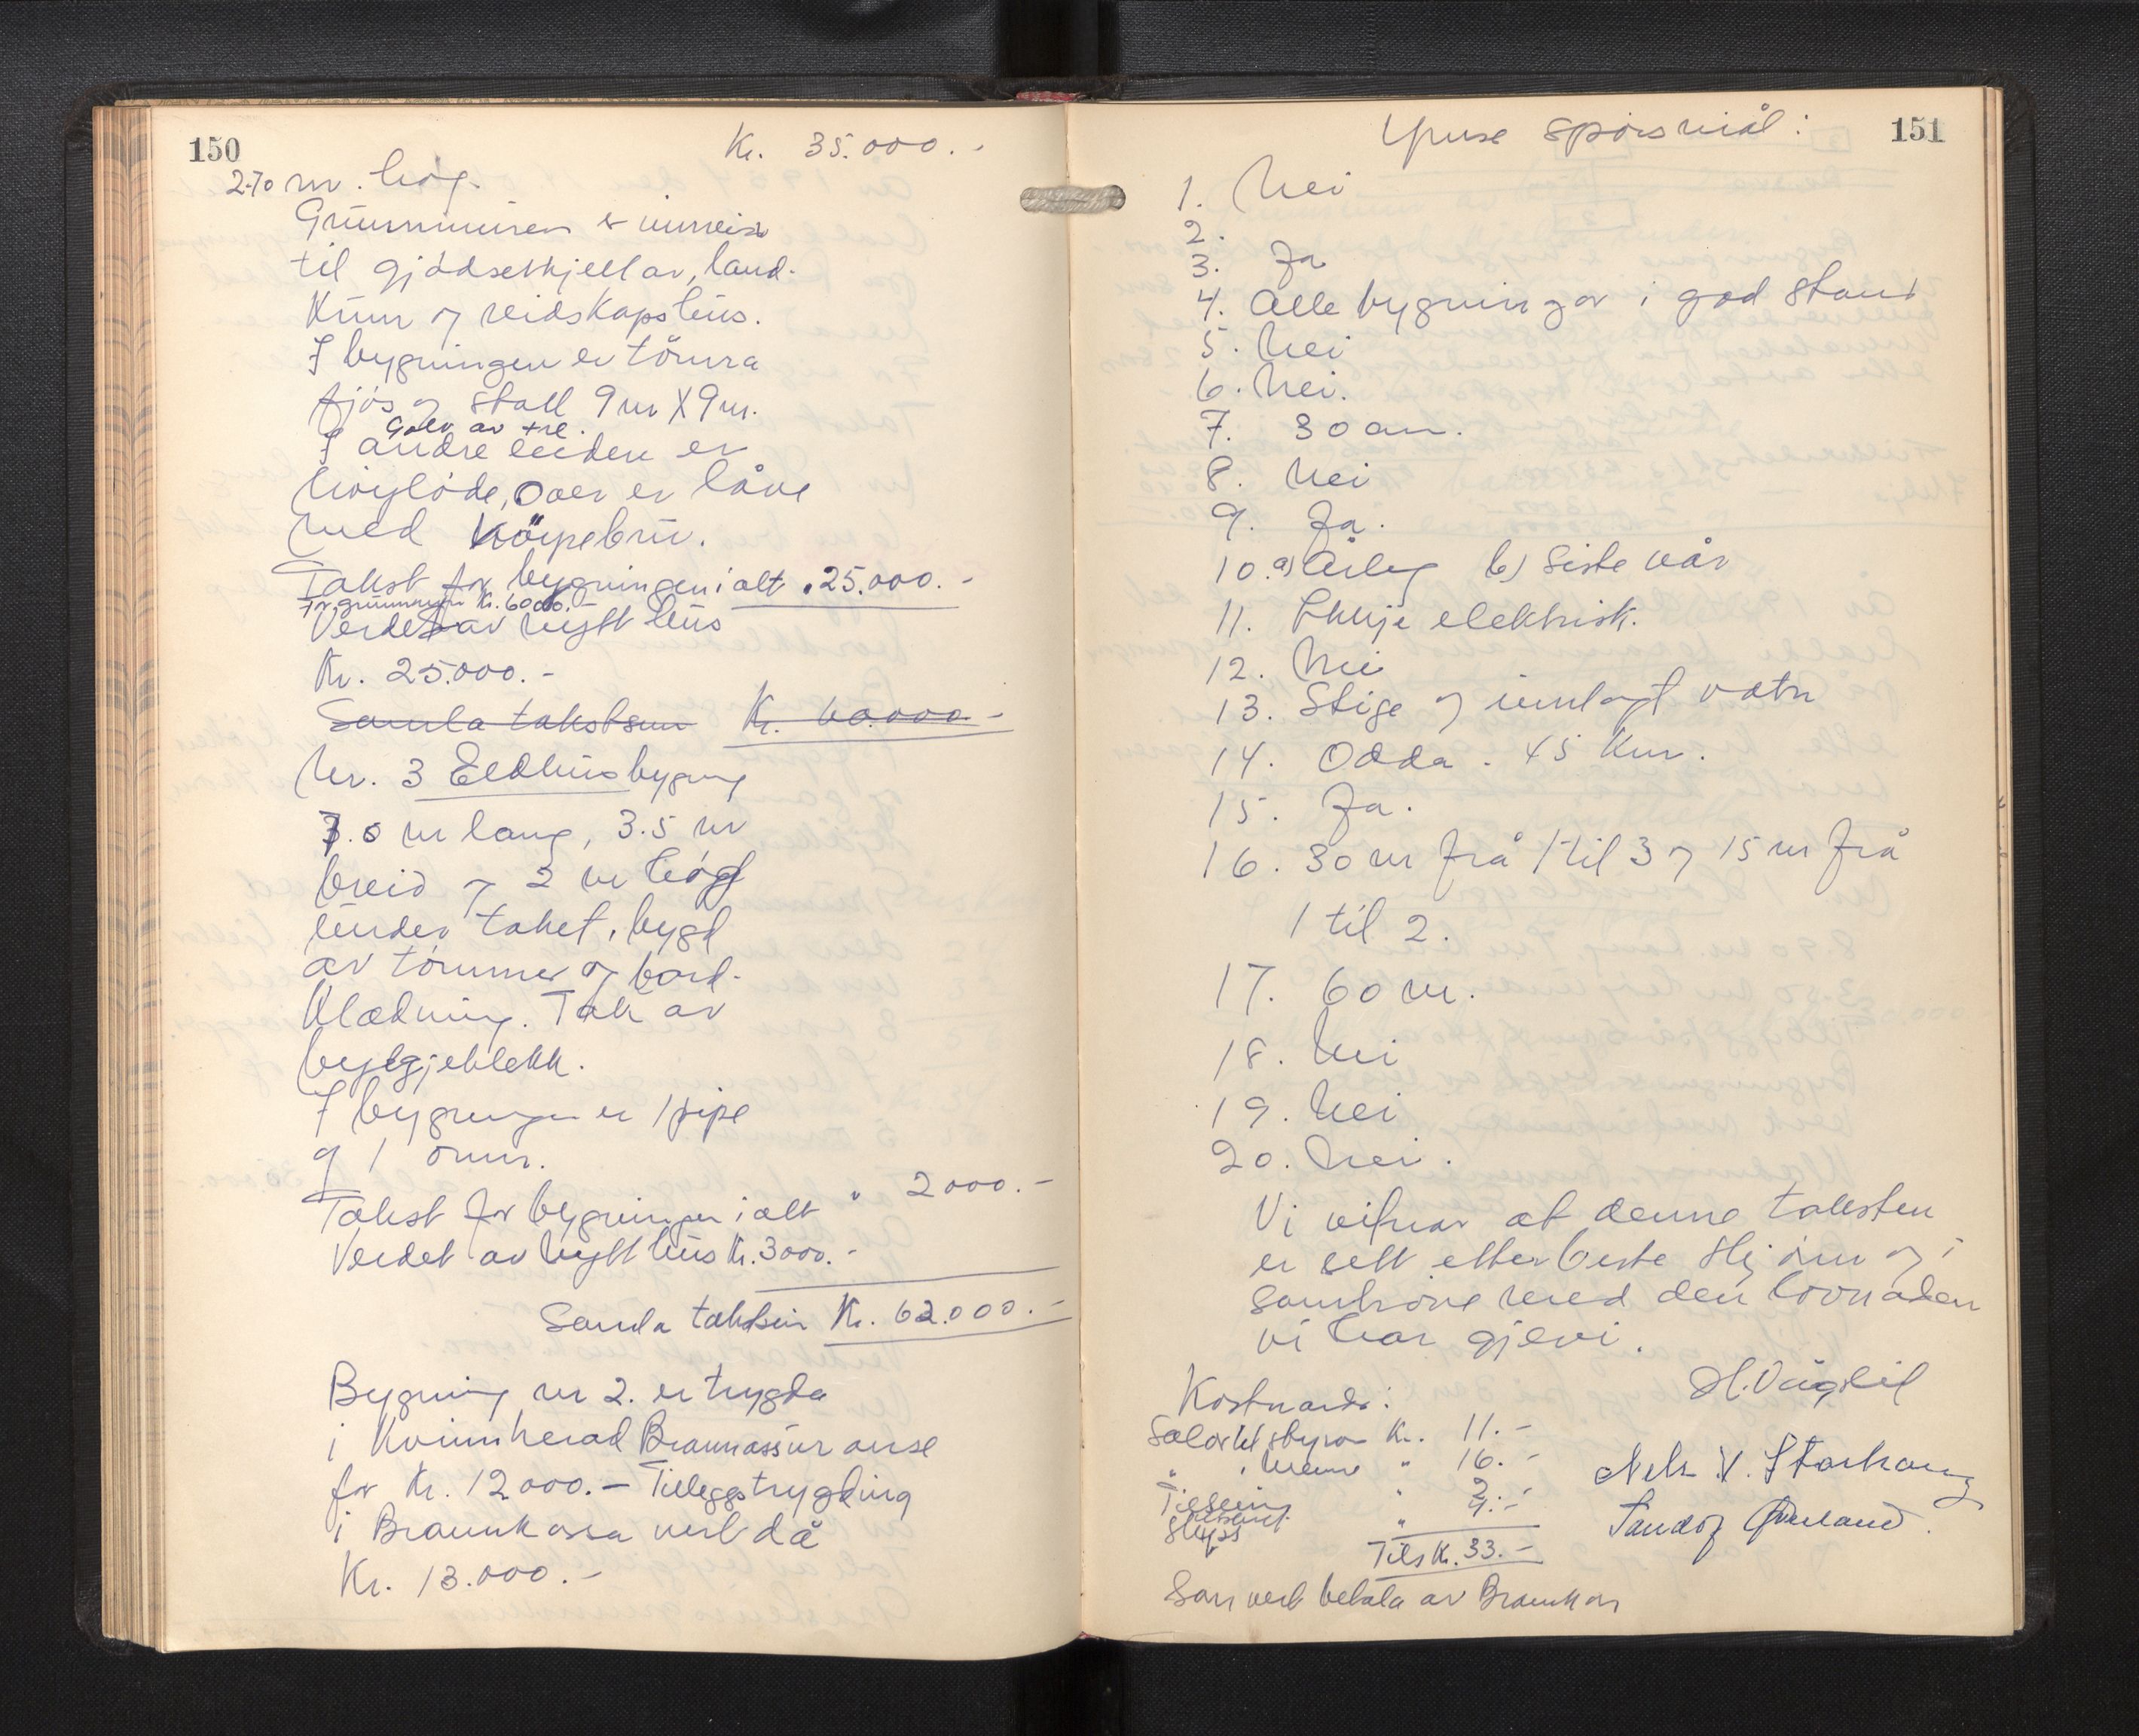 150
Kr. 35.000.-
2.70 m. høg.
Grunnmuren er innreia
til gjødselkjellar, land-
kum og reidskapshus.
I bygningen er tömra
fjøs og stall 9 m X 9 m.
Golv av tre.
I andre enden er
høyløde, over er låve
med köyrebru.
Takst for bygningen i alt " 25.000.-
For grunnmuren Kr. 6000.-
Verdet av nytt hus
Kr. 25.000.-
Samla takstsum Kr. 60.000.-
Nr. 3 Eldhusbygning
7.0 m lang, 3.5 m
breid og 2 m høg
under taket, bygd
av tømmer og bord-
klædning. Tak av
bylgjeblekk.
I bygningen er 1 pipe
og 1 omn.
Takst for bygningen i alt " 2000.-
Verdet av nytt hus Kr. 3000.-
Samla takstsum Kr. 62.000.-
Bygning nr 2. er trygda
i Kvinnherad Brannassuranse
for Kr. 12000.- Tilleggstrygding
i Brannkassa vert då
Kr. 13.000.-
151
Ymse spørsmål:
1. Nei
2.
3. Ja
4. Alle bygningar i god stand
5. Nei
6. Nei.
7. 30 cm.
8. Nei
9. Ja.
10. a) Årleg b) Siste vår
11. Linje elektrisk.
12. Nei
13. Stige og innlagt vatn
14. Odda. 45 km.
15. Ja.
16. 30 m frå 1 til 3 og 15 m frå
1 til 2.
17. 60 m.
18. Nei
19. Nei
20. Nei.
Vi vitnar at denne taksten
er sett etter beste skjønn og i
samhøve med den lovnaden
vi har gjevi.
H. Vågslid
Kostnads:
Kr. 11.-
" " 16.-
" 2.-
" 4.-
Nils V.
Tils Kr. 33.-
Som vert betala av Brannkassa